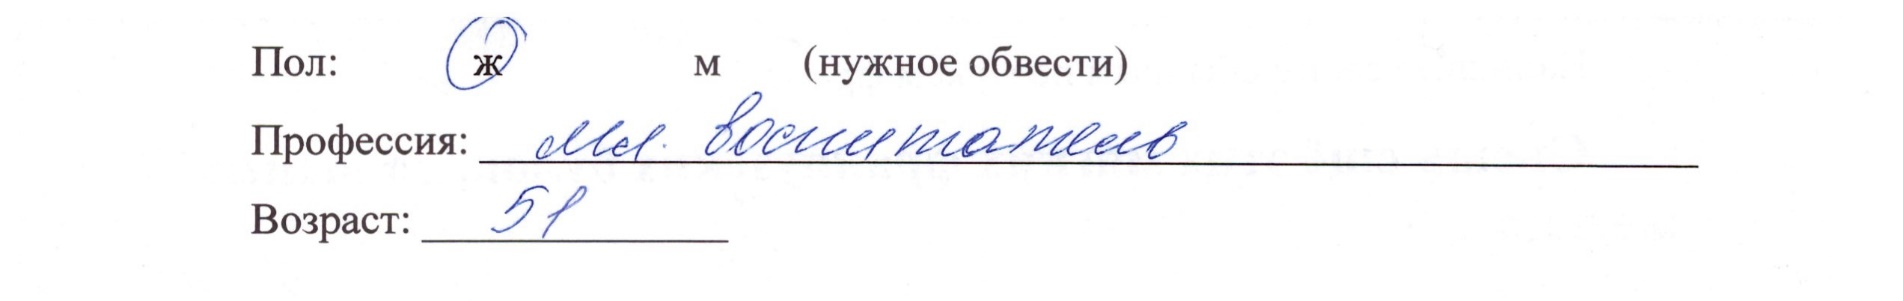 Пол: ж м (нужное обвести)
Профессия: Мл. воспитатель
Возраст: 51